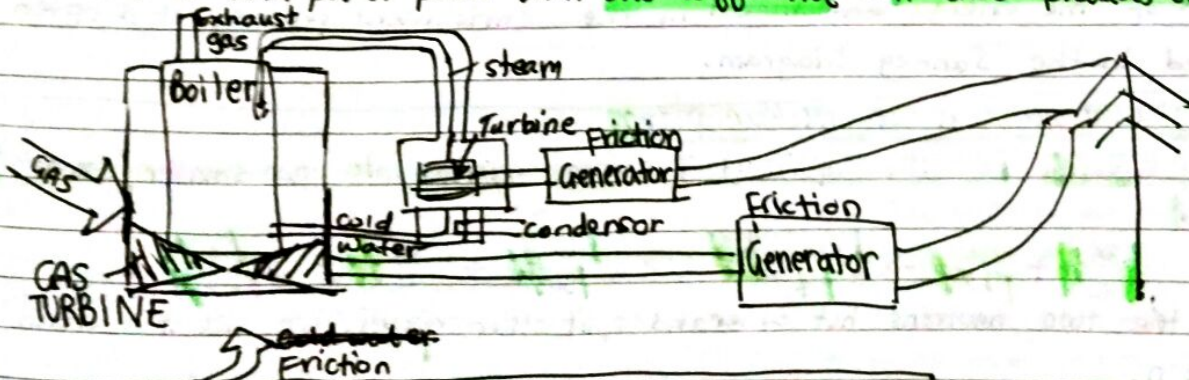 Exhaust
gas
Boiler
steam
Turbine
Friction
Generator
GAS
cold
water
condensor
Friction
Generator
GAS
TURBINE
cold water
Friction